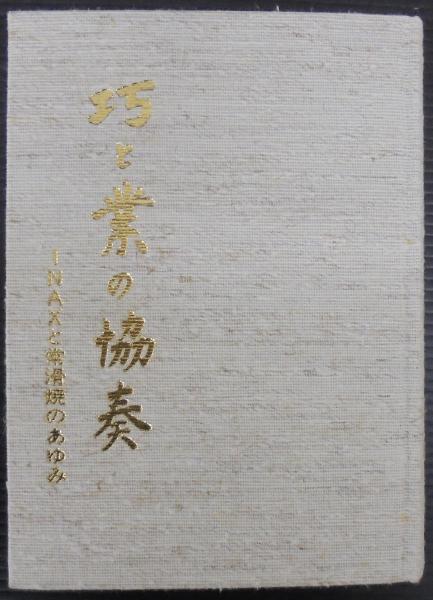 巧と業の協奏
INAXと常滑焼のあゆみ